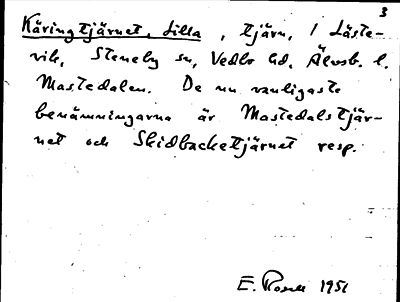 3
Käringtjärnet, Lilla, tjärn, i Läste-
vik, Steneby sn, Vedbo hd, Älvsb. l.
Mostedalen. De nu vanligaste
benämningarna är Mostedalstjär-
net och Skidbacketjärnet resp.
E. 1951